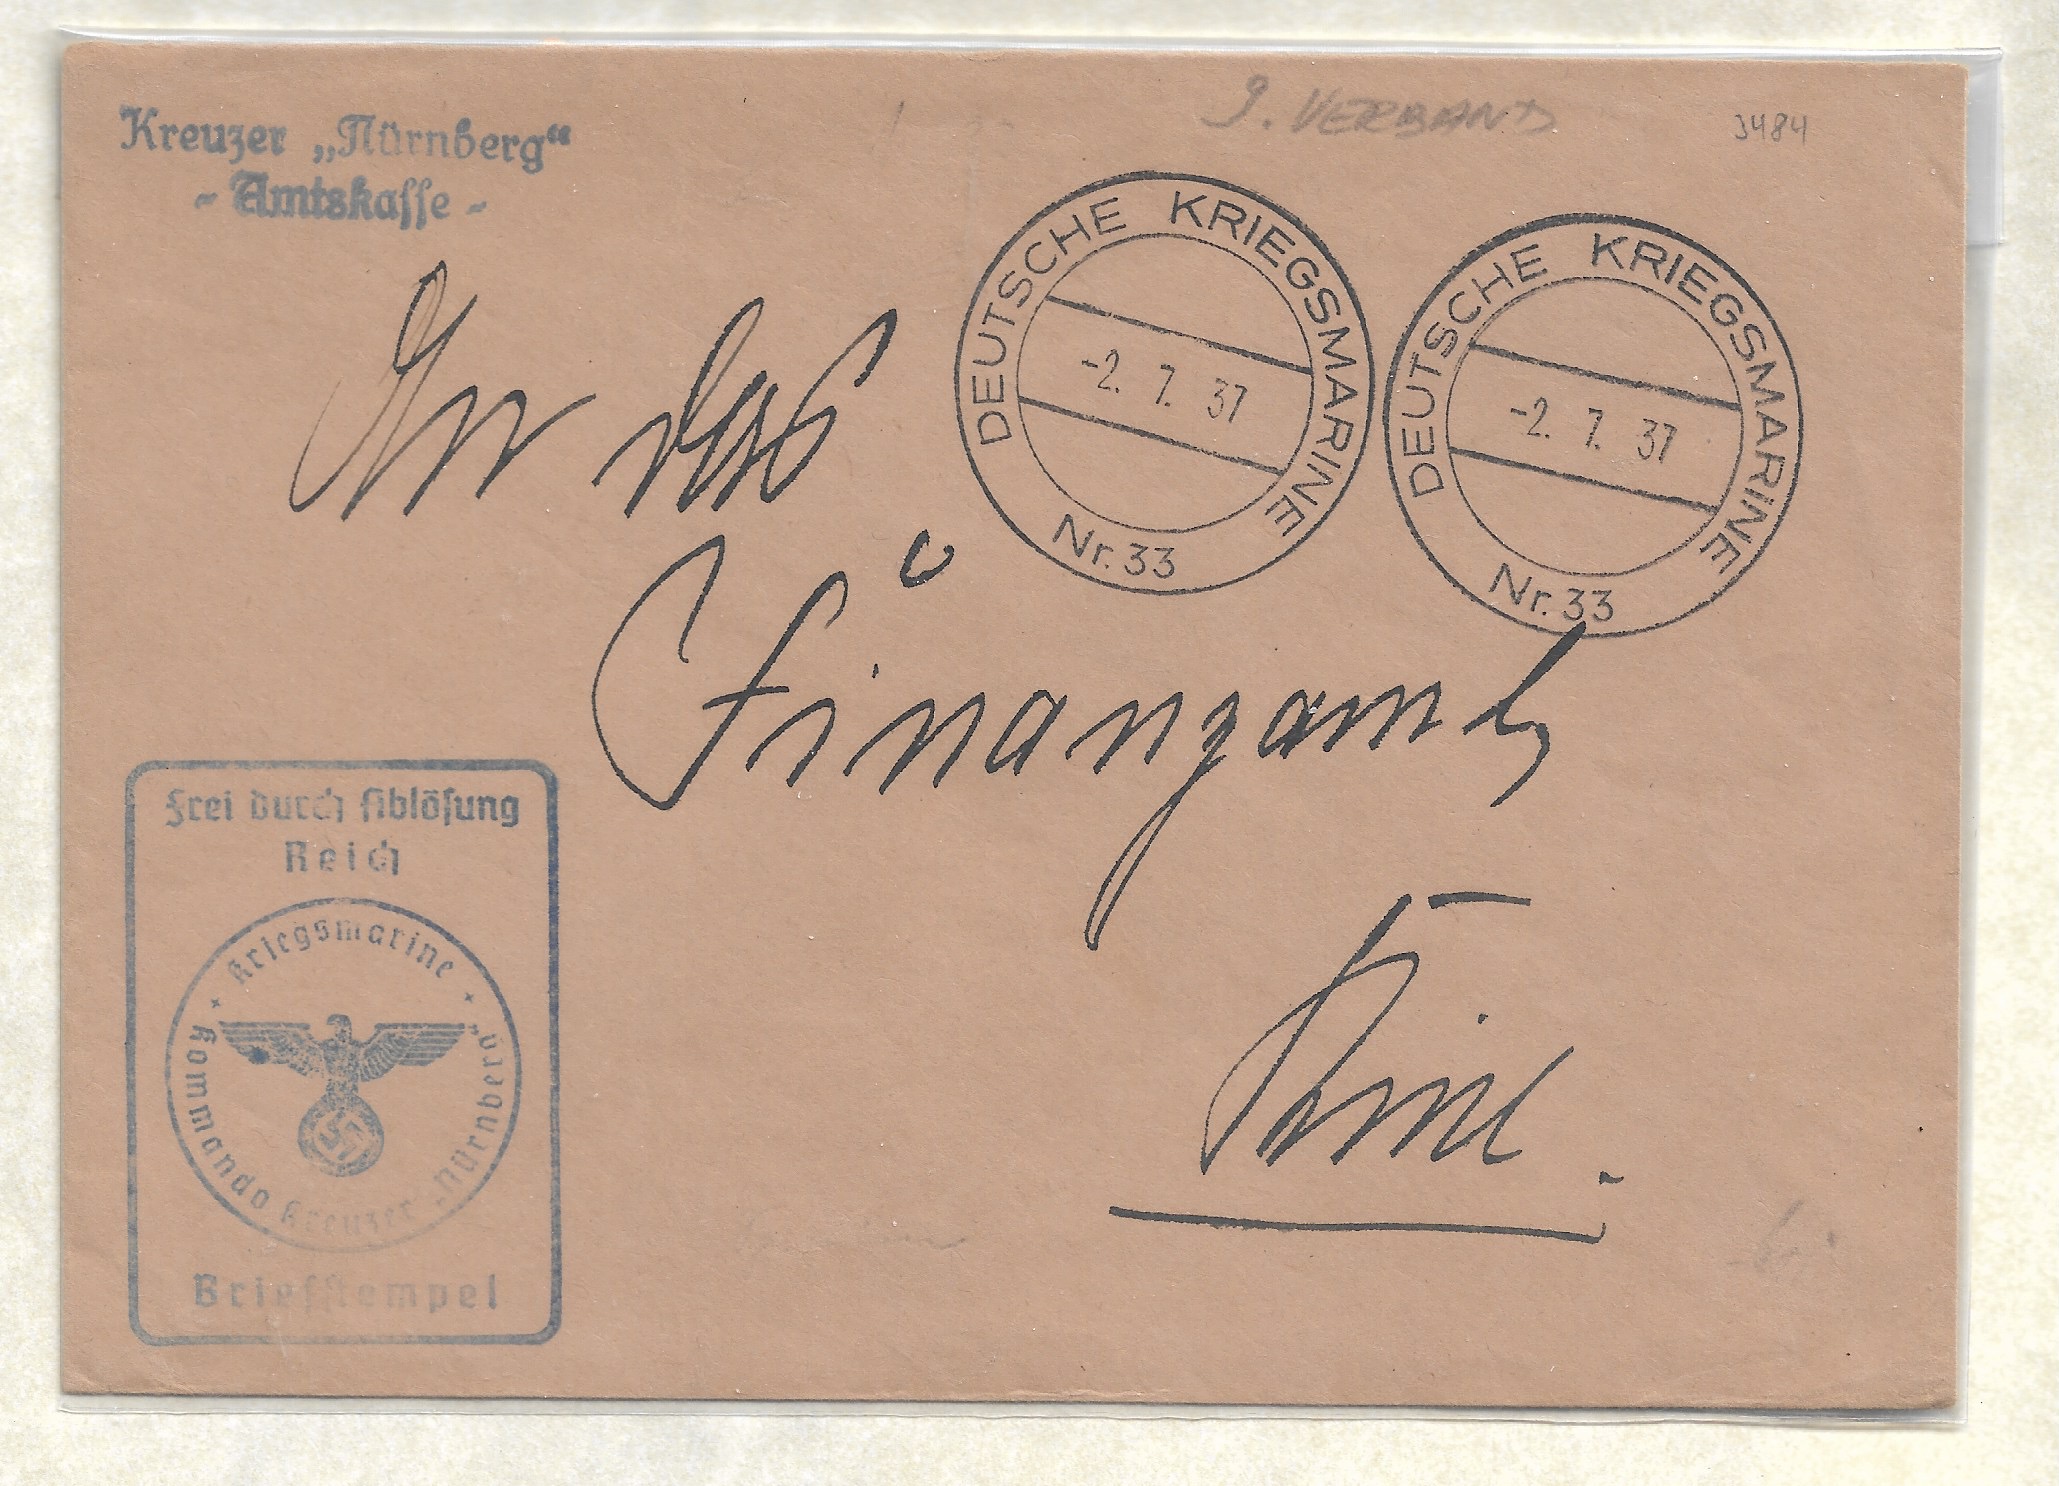 Kreuzer „Nürnberg“
- Amtskasse -
9. VERBAND
3484
DEUTSCHE KRIEGSMARINE
-2. 7. 37
Nr. 33
DEUTSCHE KRIEGSMARINE
-2. 7. 37
Nr. 33
An das
Finanzamt
Kiel.
Frei durch Ablösung
Reich
Kriegsmarine
Kommando Kreuzer „Nürnberg“
Briefstempel